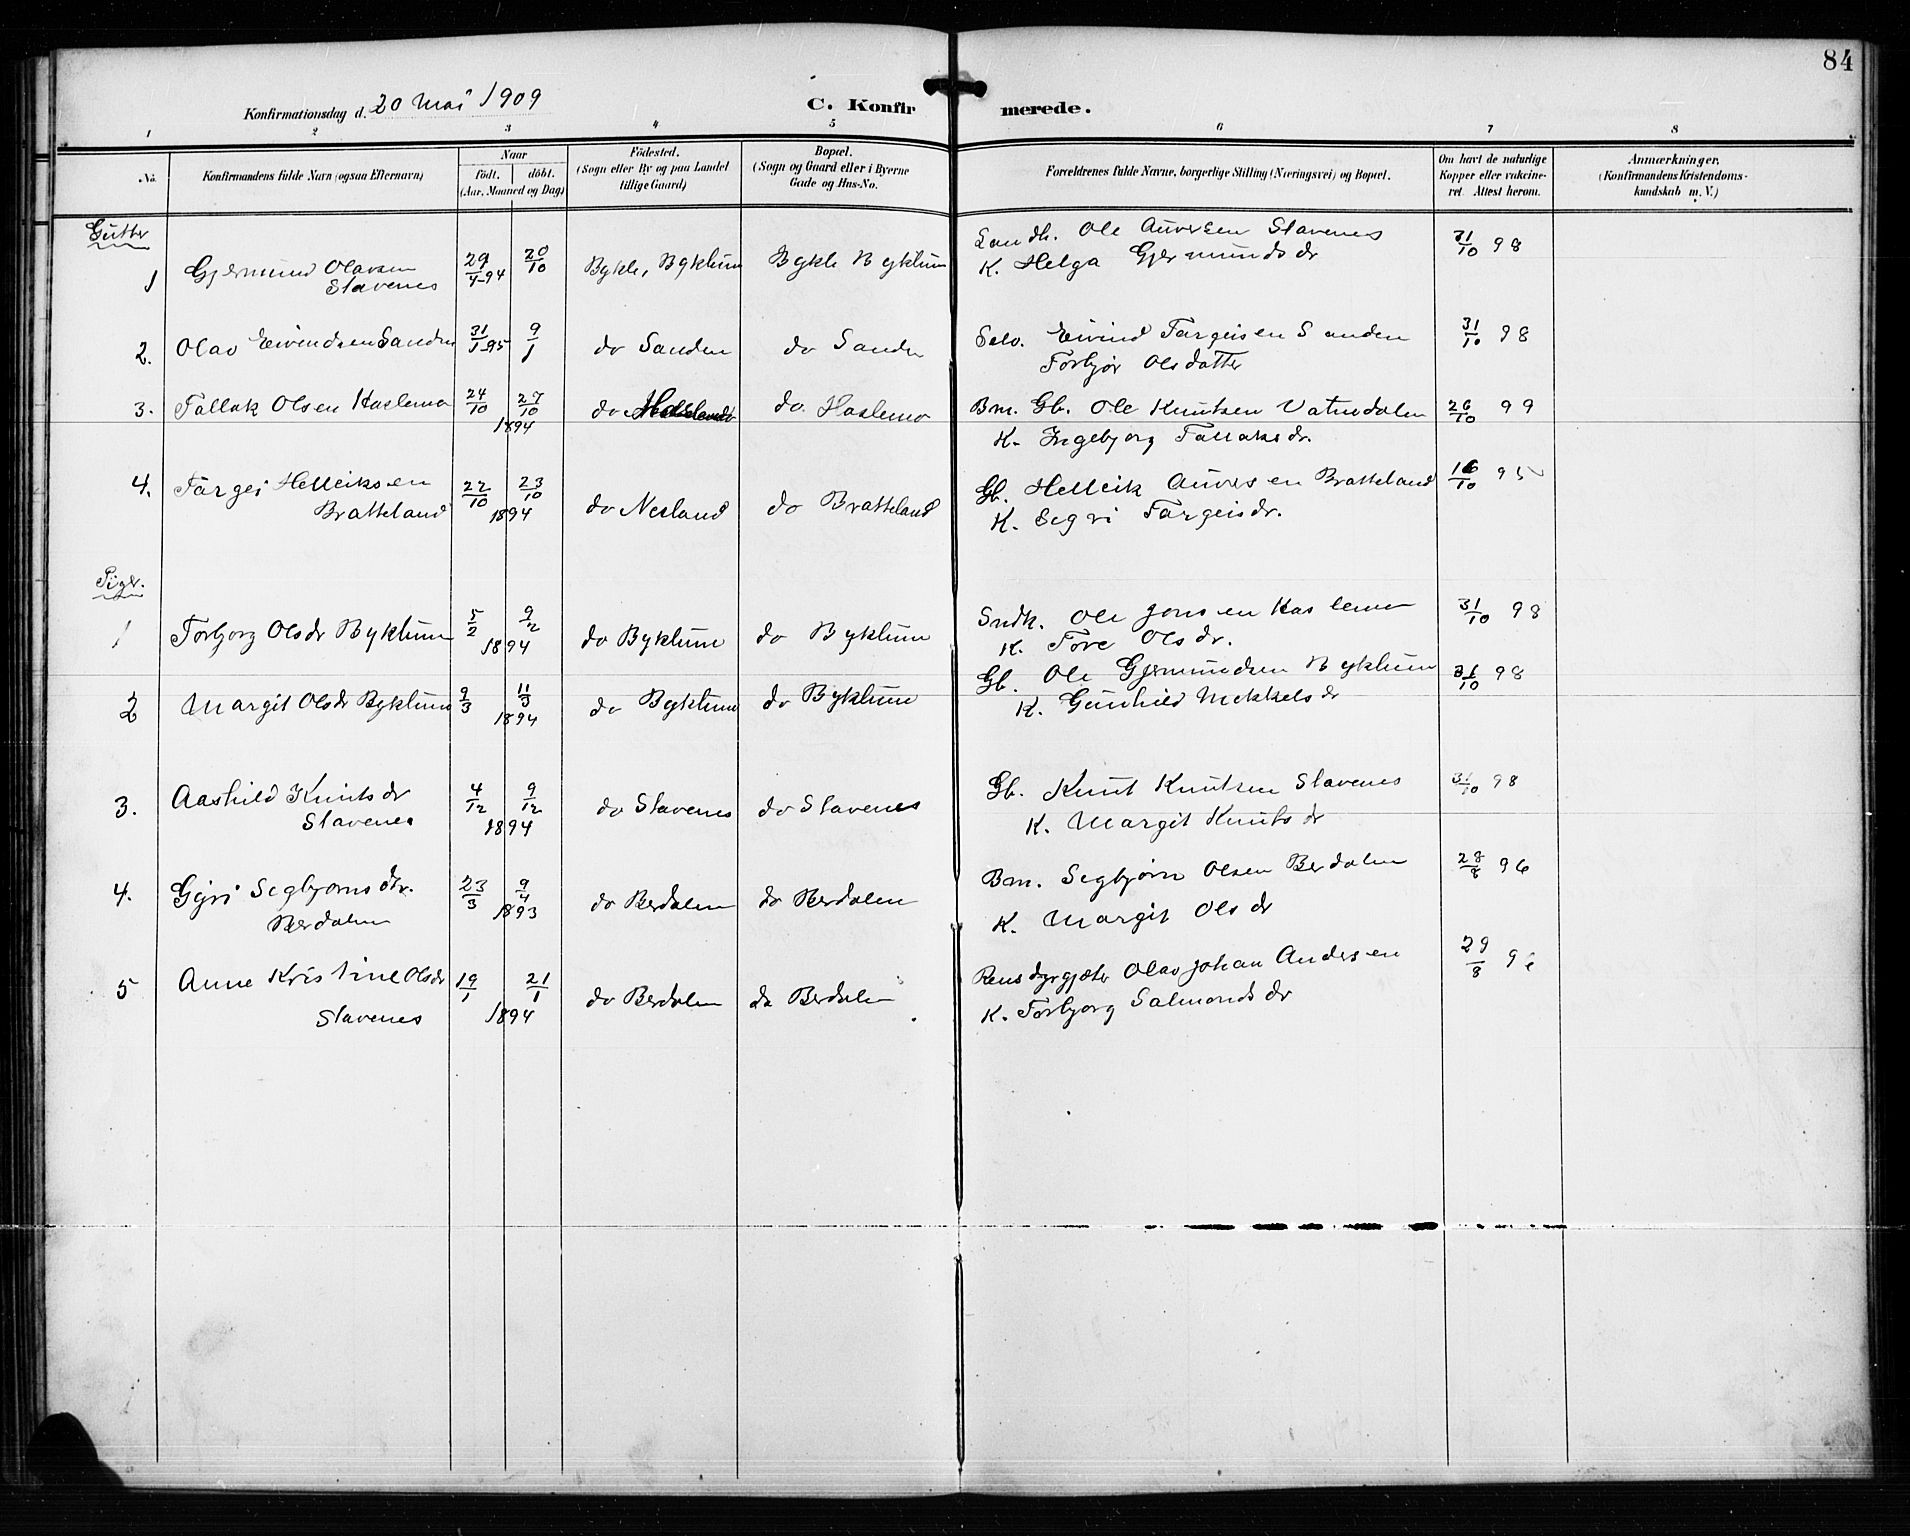 84
Konfirmationsdag d. 20 Mai 1909 C. Konfir merede.
1 2 3 4 5 6 7 8
No. Konfirmandens fulde Navn (ogsaa Efternavn) Naar født. døbt. (Aar, Maaned og Dag) Fødested. (Sogn eller By og paa Landet tillige Gaard) Bopæl. (Sogn og Gaard eller i Byerne Gade og Hus-No. Forældrenes fulde Navne, borgerlige Stilling (Næringsvei) og Bopæl. Om havt de naturlige Kopper eller vaccineret. Attest herom. Anmærkninger. (Konfirmandens Kristendomskundskab m. V.)
Gutter
1 Gjermund Olavsen 29/4-94 20/10 Bykle, Byklum Bykle Byklum Ole Auversen Slavenes 31/10 98
Slavenes K. Helga Gjermunds dr
2. Olav Eivindsen Sanden 31/1-95 9/1 do Sanden do Sanden Selv. Eivind Targeisen Sanden 31/10 98
Torbjør Olsdatter
3. Tallak Olsen Haslemo 24/10 27/10 1894 do do Haslemo Bm. Gb. Ole Knutsen Vatnedalen 26/10 99
K. Ingebjorg Tallaks dr.
4. Targei Helleiksen 22/10 23/10 1894 do Nesland do Bratteland Gb. Helleik Auversen Bratteland 16/10 95
Bratteland K. Segri Targeis dr.
Piger.
1 Torbjorg Olsdr Byklum 5/2 9/12 1894 do Byklum do Byklum Sndk. Ole Jonsen Haslemo 31/10 98
K. Tore Olsdr.
2 Margit Olsdr Byklum 9/3 11/3 1894 do Byklum do Byklum Gb. Ole Gjermundsen Byklum 31/10 98
K. Gunhild Mikkels dr
3. Aashild Knuts dr 4/12 9/12 1894 do Slavenes do Slavenes Gb. Knut Knutsen Slavenes 31/10 98
Slavenes K. Margit Knuts dr
4. Gyri Segbjorns dtr. 23/3 9/4 1893 do Berdalen do Berdalen Bm. Segbjørn Olsen Berdalen 28/8 96
Berdalen K. Margit Ols dr
5 Anne Kristine Olsdr 19/1 21/1 1894 do Berdalen do Berdalen Rensdyrgjæter Olav Johan Andersen 29/8
Slavenes K. Torbjorg Salmonds dr